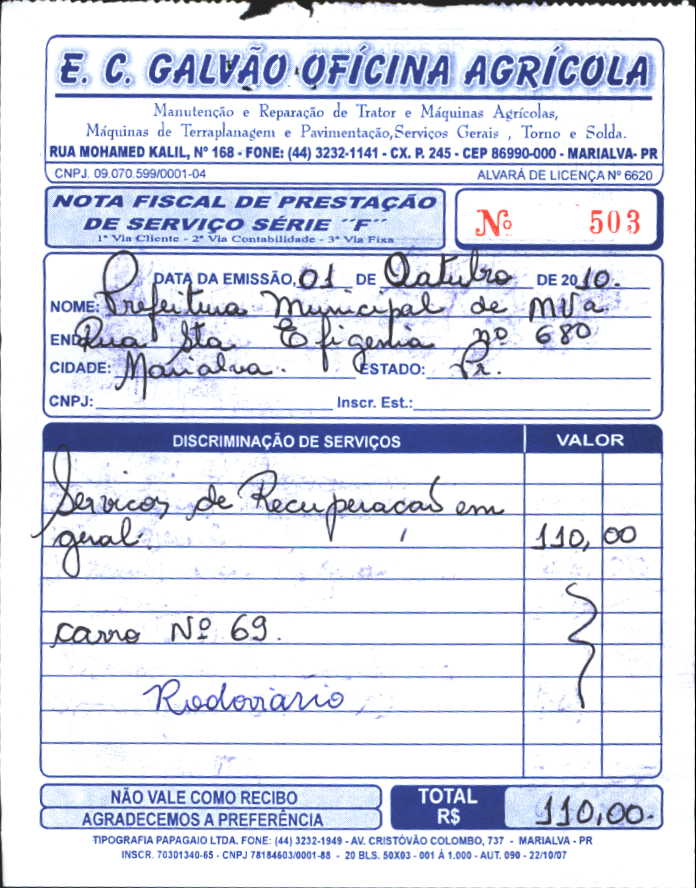 E. C. GALVÃO OFÍCINA AGRÍCOLA
Manutenção e Reparação de Trator e Máquinas Agrícolas,
Máquinas de Terraplanagem e Pavimentação,Serviços Gerais , Torno e Solda.
RUA MOHAMED KALIL, Nº 168 - FONE: (44) 3232-1141 - CX. P. 245 - CEP 86990-000 - MARIALVA- PR
CNPJ. 09.070.599/0001-04 ALVARÁ DE LICENÇA Nº 6620
NOTA FISCAL DE PRESTAÇÃO
DE SERVIÇO SÉRIE ´´F´´
1ª Via Cliente - 2ª Via Contabilidade - 3ª Via Fixa
Nº 503
DATA DA EMISSÃO, 01 DE Outubro DE 2010.
NOME: Prefeitura Municipal de MVa
END Rua Sta Efigenia nº 680
CIDADE: Marialva. ESTADO: Pr.
CNPJ: Inscr. Est.:
DISCRIMINAÇÃO DE SERVIÇOS VALOR
Servicos de Recuperacaõ em
geral. 110,00
carro Nº 69.
Rodoviario
NÃO VALE COMO RECIBO
AGRADECEMOS A PREFERÊNCIA
TOTAL
R$ 110,00.
TIPOGRAFIA PAPAGAIO LTDA. FONE: (44) 3232-1949 - AV. CRISTÓVÃO COLOMBO, 737 - MARIALVA - PR
INSCR. 70301340-65 - CNPJ 78184603/0001-88 - 20 BLS. 50X03 - 001 Á 1.000 - AUT. 090 - 22/10/07